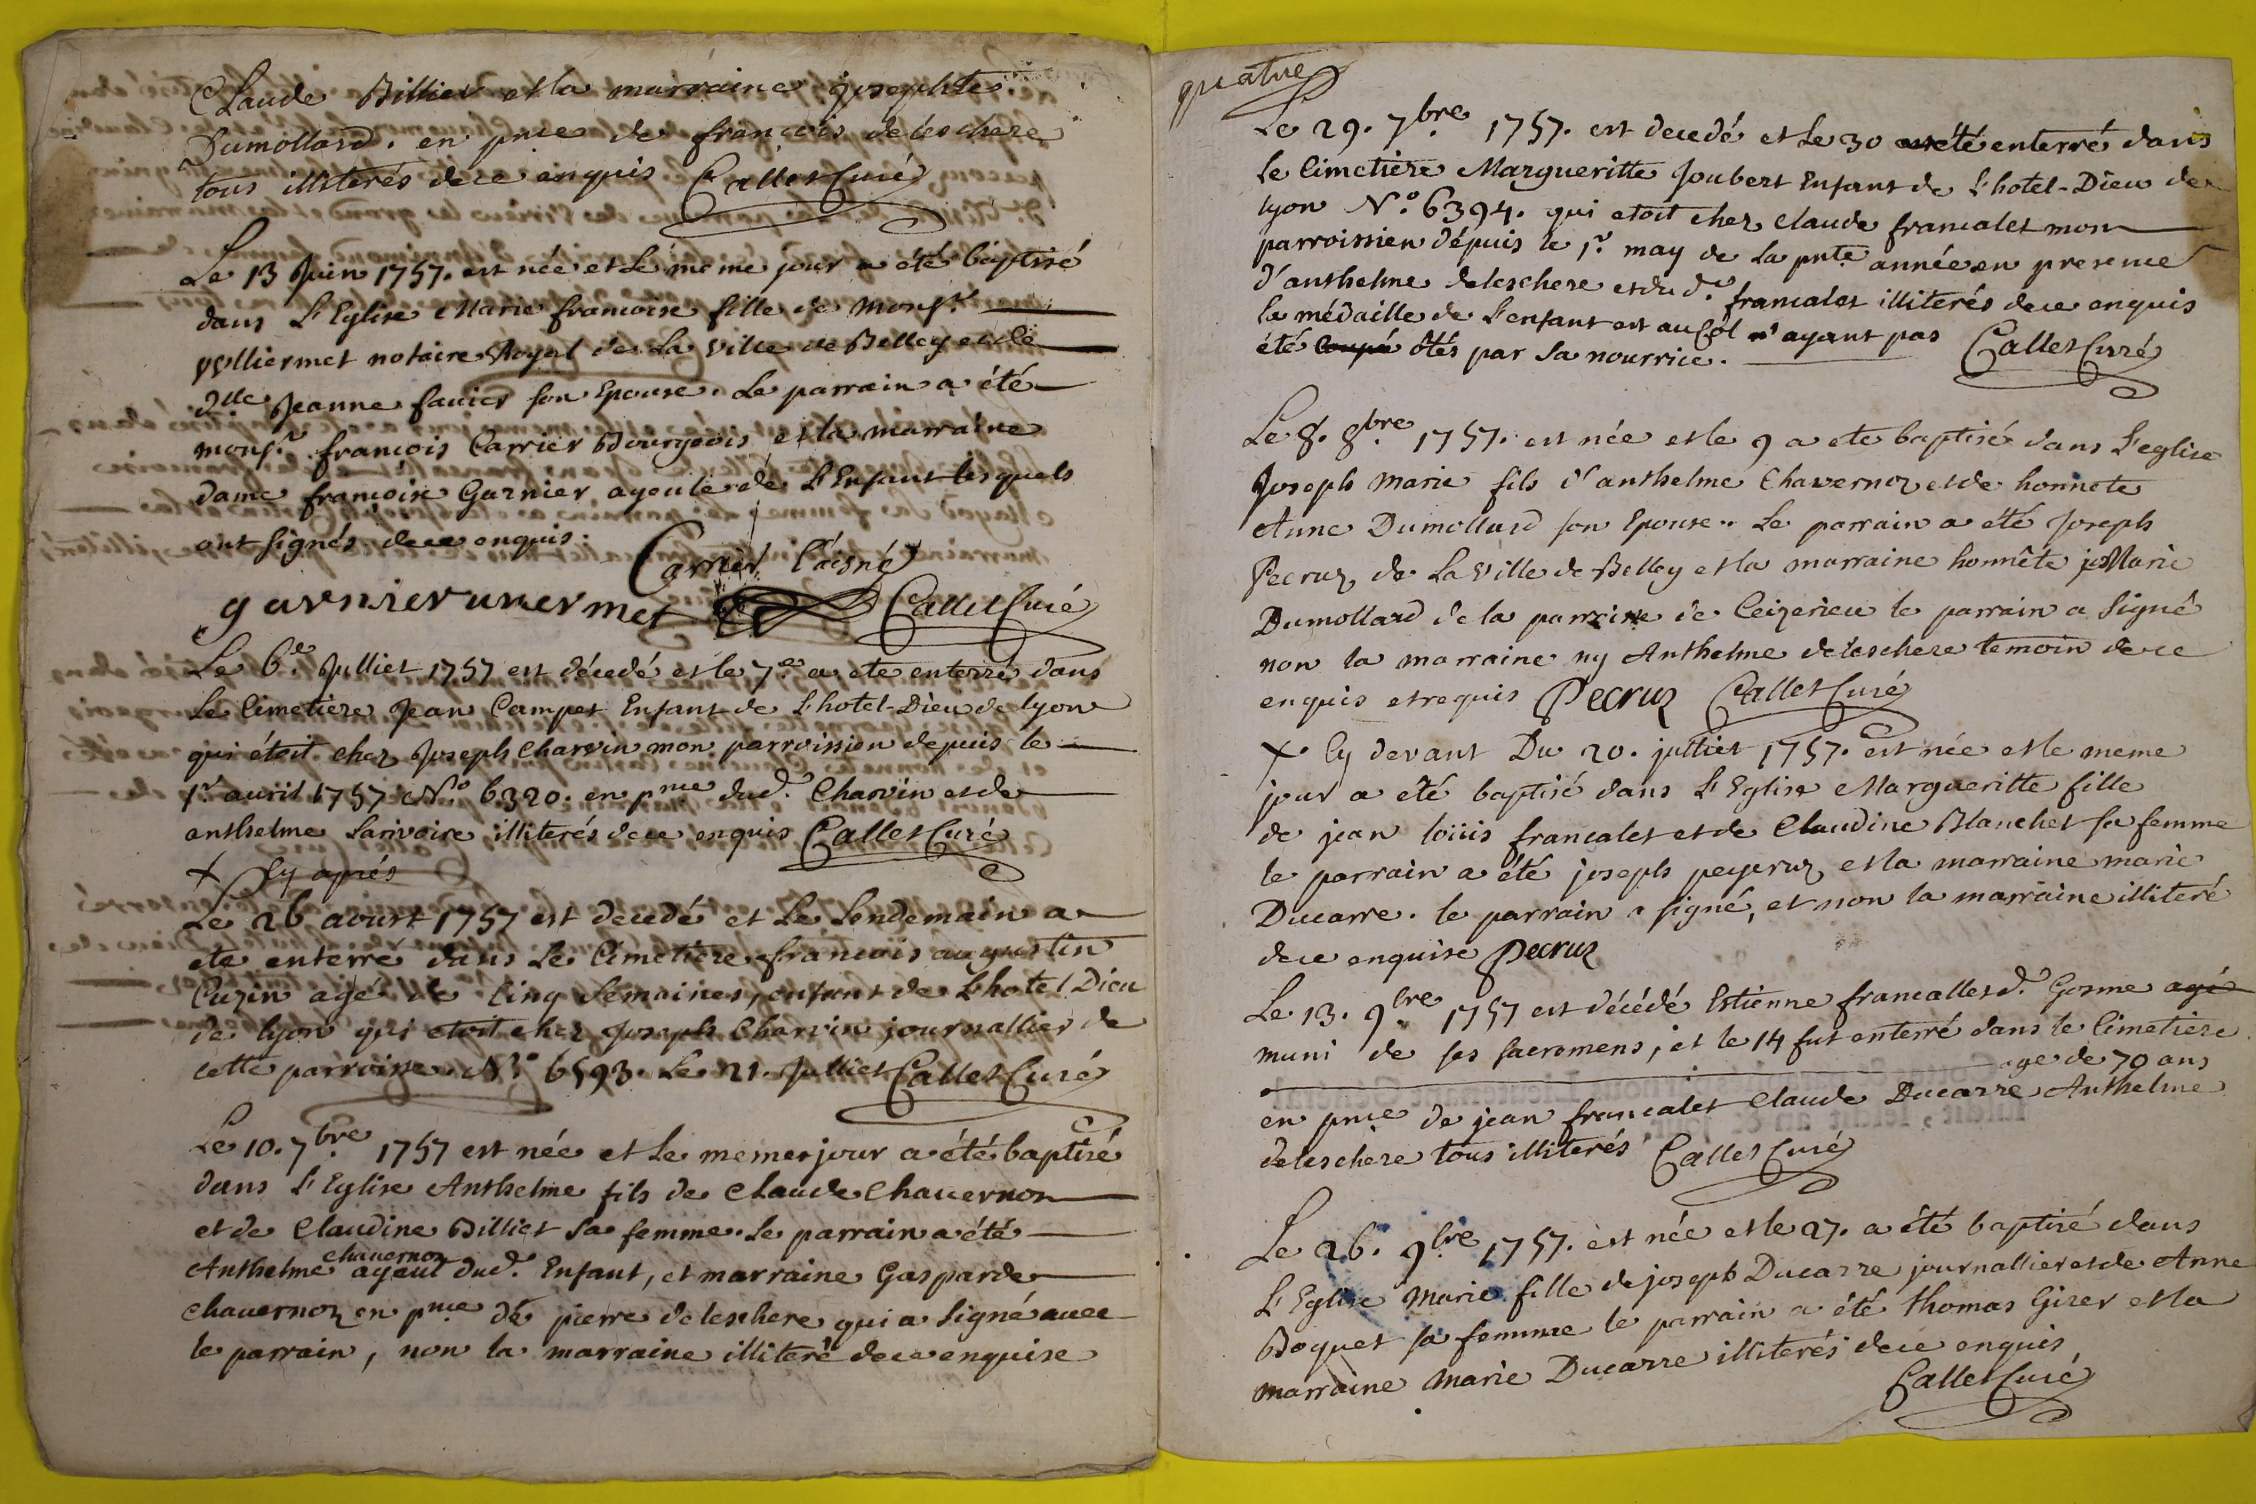 Claude Billiet et la marraine josephte
Dumollard. en pnce de françois deleschere
tous illiterés de ce enquis Callet Curé
Le 13 Juin 1757. est née et Le même jour a été baptisé
dans L'Eglise Marie francoise fille de Monsr.
Vulliermet notaire Royal de La ville de Belley et de
Dlle Jeanne favier son Epouse. Le parrain a été
monsr. francois Carrier Bourgeois et la marraine
dame francoise Garnier ayeule de L'Enfant lesquels
ont signés de ce enquis.
Carrier l'aisné
garnier Callet Curé
Le 6e Julliet 1757 est décedé et le 7e a ete enterré dans
Le Cimetiere Jean Campet Enfant de L'hotel-Dieu de lyon
qui étoit chez Joseph Charvin mon parroissien depuis le
1r avril 1757 No. 6320. en pnce dud. Charvin et de
anthelme Larivoire illiterés de ce enquis Callet Curé
+ Cy aprés
Le 26 avoust 1757 est decedé et Le Lendemain a
ete enterré dans Le Cimetiere francois augustin
Cuzin agé de Cinq Semaines, enfant de L'hotel Dieu
de lyon qui etoit chez Joseph Charvin journallier de
cette parroisse No. 6593. Le 21. Julliet Callet Curé
Le 10. 7bre 1757 est née et Le meme jour a été baptisé
dans L'Eglise Anthelme fils de Claude Chavernoz
et de Claudine Billiet sa femme. Le parrain a été
chavernoz
Anthelme ayeul dud. Enfant, et marraine Gasparde
chavernoz en pnce de pierre deleschere qui a Signé avec
le parrain, non la marraine illiteré de ce enquise
quatre
Le 29. 7bre 1757. est decedé et Le 30 a été enterré dans
Le Cimetiere Margueritte Joubert Enfant de L'hotel-Dieu de
lyon No. 6394. qui etoit chez Claude francalet mon
parroissien dépuis le 1r. may de La pnte année en presence
d'anthelme deleschere et du d. francalet illiterés de ce enquis
la médaille de L'enfant est au Col n'ayant pas
été coupé ôtés par sa nourrice. Callet Curé
Le 8. 8bre 1757. est née et le 9 a ete baptisé dans L'eglise
Joseph Marie fils d'anthelme Chavernoz et de honnete
Anne Dumollard son Epouse. Le parrain a été Joseph
Pecruz de La ville de Belley et la marraine honnête Marie
Dumollard de la parroisse de Ceizerieu le parrain a Signé
non la marraine ny Anthelme deleschere temoin de ce
enquis et requis Pecruz Callet Curé
+. Cy devant Du 20. julliet 1757. est née et le meme
jour a été baptisé dans L'Eglise Margueritte fille
de jean loüis francalet et de Claudine Blanchet sa femme
le parrain a été joseph peyeruz et la marraine marie
Ducarre. le parrain a signé, et non la marraine illiteré
de ce enquise Pecruz
Le 13. 9bre 1757 est décédé Estienne francallet d. Gosme agé
muni de ses sacremens, et le 14 fut enterré dans le Cimetiere
age de 70 ans
en pnce de jean francalet Claude Ducarre Anthelme
deleschere tous illiterés Callet Curé
Le 26. 9bre 1757. est née et le 27. a été baptisé dans
L'Eglise Marie fille de joseph Ducarre journallier et de Anne
Boquet sa femme le parrain a été thomas Girer et la
marraine Marie Ducarre illiterés de ce enquis
Callet Curé